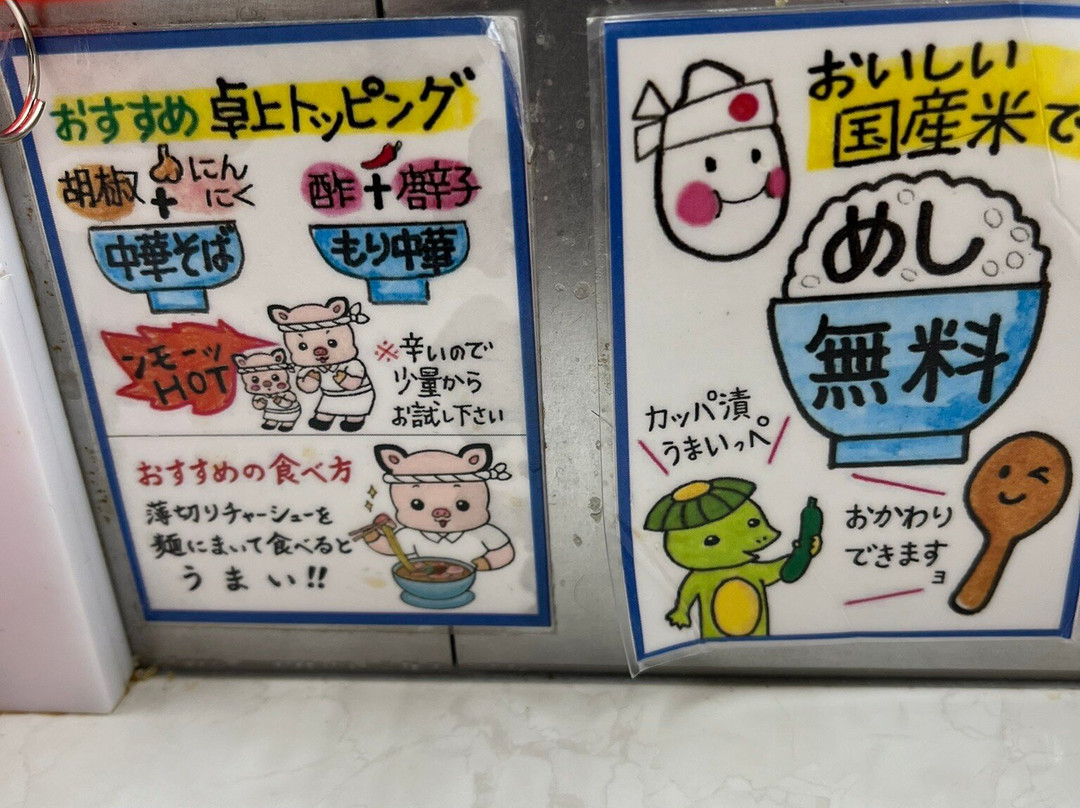 おすすめ 卓上トッピング
胡椒+にんにく
中華そば
酢+唐辛子
もり中華
ンモーッ
HOT
※辛いので
少量から
お試し下さい
おすすめの食べ方
薄切りチャーシューを
麺にまいて食べると
うまい!!
おいしい
国産米で
めし
無料
カッパ漬
うまいっぺ
おかわり
できますョ